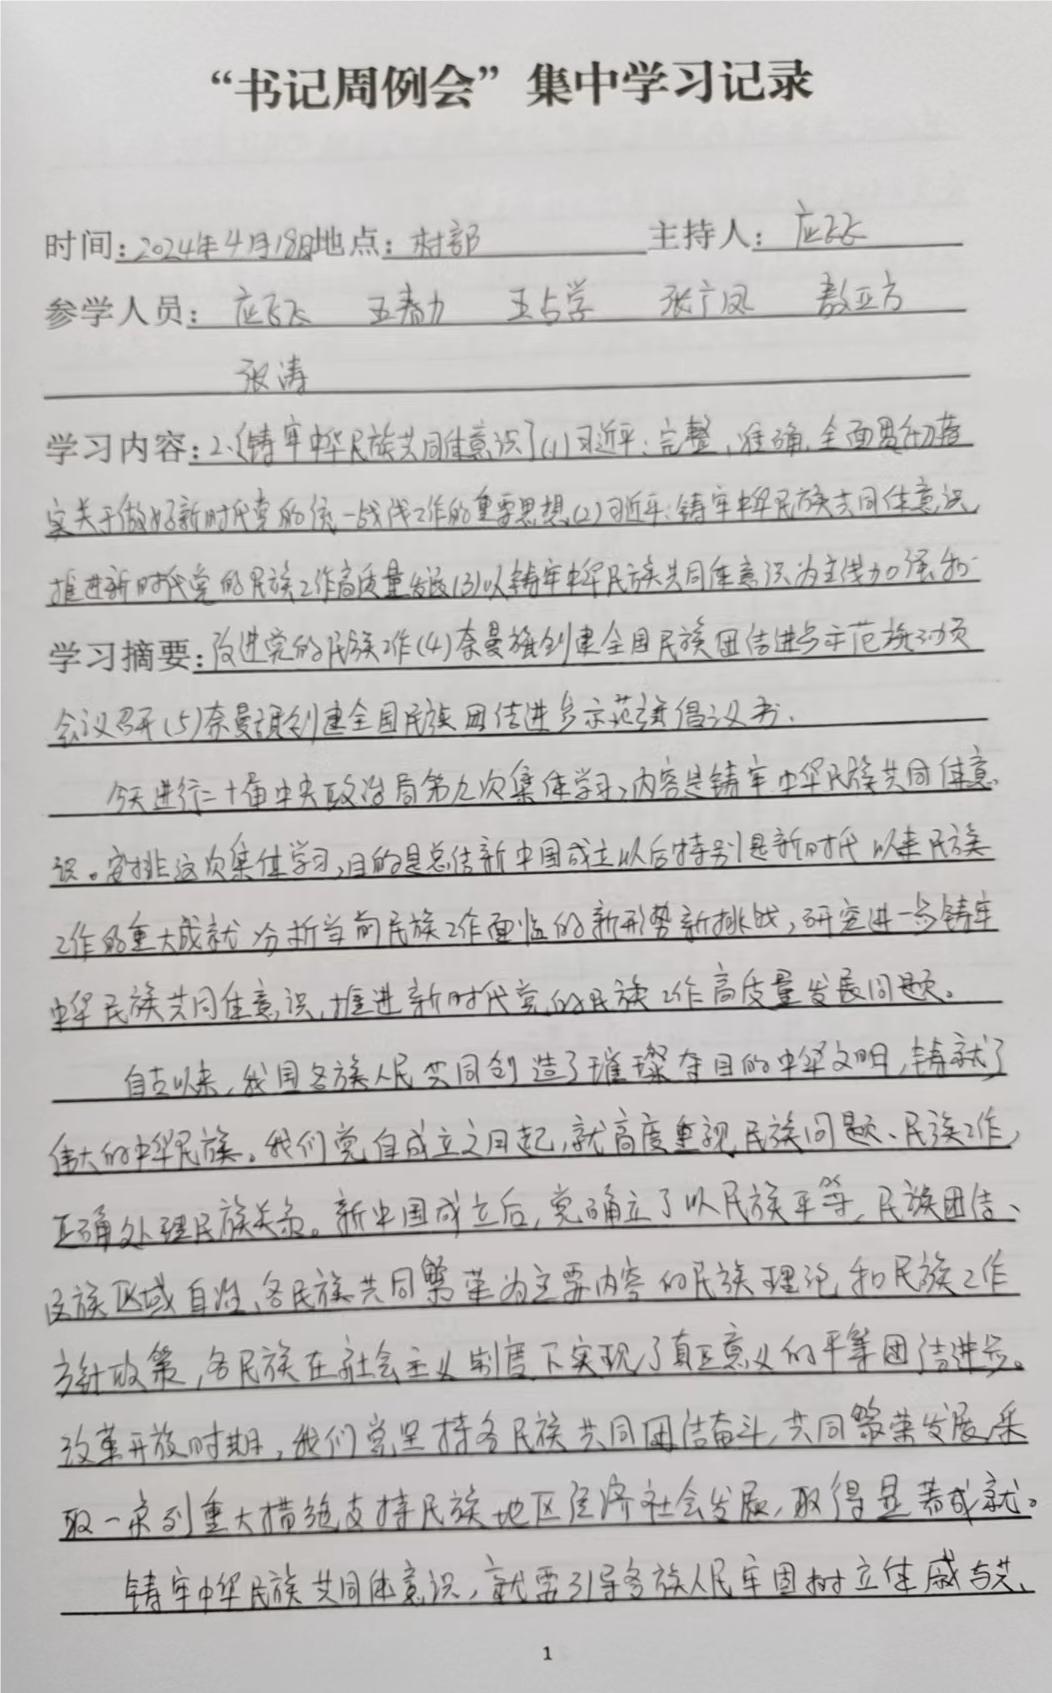 “书记周例会”集中学习记录
时间：2024年4月18日地点：村部 主持人：应飞飞
参学人员：应飞飞 王春力 王占学 张广凤 敖亚方
张涛
学习内容：2.《铸牢中华民族共同体意识》(1)习近平：完整、准确、全面贯彻落
实关于做好新时代党的统一战线工作的重要思想(2)习近平：铸牢中华民族共同体意识，
推进新时代党的民族工作高质量发展(3)以铸牢中华民族共同体意识为主线加强和
学习摘要：改进党的民族工作(4)奈曼旗创建全国民族团结进步示范旗动员
会议召开(5)奈曼旗创建全国民族团结进步示范旗倡议书。
今天进行二十届中央政治局第九次集体学习，内容是铸牢中华民族共同体意
识。安排这次集体学习，目的是总结新中国成立以后特别是新时代以来民族
工作的重大成就 分析当前民族工作面临的新形势新挑战，研究进一步铸牢
中华民族共同体意识，推进新时代党的民族工作高质量发展问题。
自古以来，我国各族人民共同创造了璀璨夺目的中华文明，铸就了
伟大的中华民族。我们党自成立之日起，就高度重视民族问题、民族工作，
正确处理民族关系。新中国成立后，党确立了以民族平等、民族团结、
民族区域自治、各民族共同繁荣为主要内容的民族理论和民族工作
方针政策，各民族在社会主义制度下实现了真正意义的平等团结进步。
改革开放时期，我们党坚持各民族共同团结奋斗，共同繁荣发展，采
取一系列重大措施支持民族地区经济社会发展，取得显著成就。
铸牢中华民族共同体意识，就要引导各族人民牢固树立休戚与共、
1